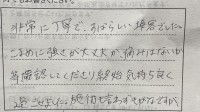 非常に丁寧で、すばらしい接客でした。
こまめに強さが大丈夫か痛みはないか
等確認してくださり終始気持ち良く
過ごせました。施術も言わずがなですが